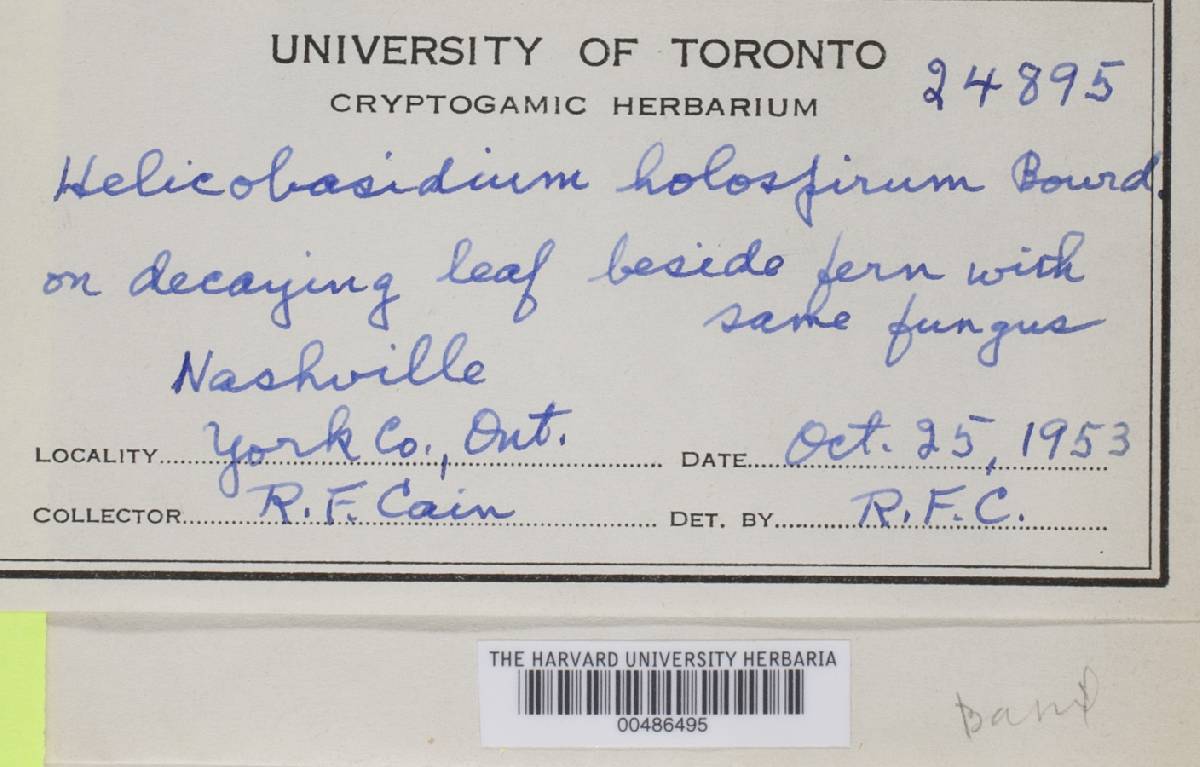 UNIVERSITY OF TORONTO
24895
CRYPTOGAMIC HERBARIUM
Helicobasidium holospirum Bourd.
on decaying leaf beside fern with
same fungus
Nashville
LOCALITY York Co., Ont. DATE Oct. 25, 1953
COLLECTOR R. F. Cain DET. BY R. F. C.
THE HARVARD UNIVERSITY HERBARIA
00486495